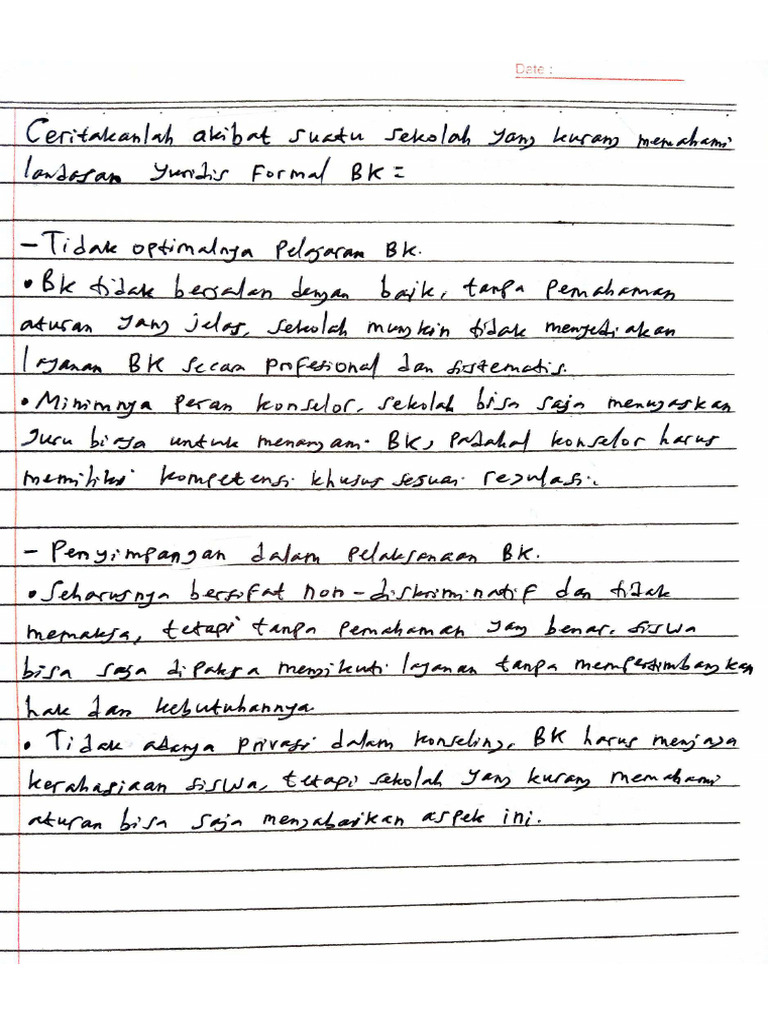 Date :
Ceritakanlah akibat suatu sekolah yang kurang memahami
landasan yuridis Formal BK =
- Tidak optimalnya Pelajaran BK.
• BK tidak berjalan dengan baik, tanpa pemahaman
aturan yang jelas, sekolah mungkin tidak menyediakan
layanan BK secara profesional dan sistematis.
• Minimnya peran konselor, sekolah bisa saja menugaskan
guru biasa untuk menangani BK, padahal konselor harus
memiliki kompetensi khusus sesuai regulasi.
- Penyimpangan dalam pelaksanaan BK.
• Seharusnya bersifat non-diskriminatif dan tidak
memaksa, tetapi tanpa pemahaman yang benar. siswa
bisa saja dipaksa mengikuti layanan tanpa mempertimbangkan
hak dan kebutuhannya
• Tidak adanya privasi dalam konseling, BK harus menjaga
kerahasiaan siswa, tetapi sekolah yang kurang memahami
aturan bisa saja mengabaikan aspek ini.